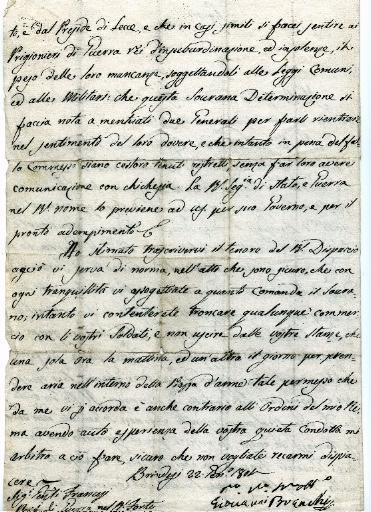 to, e dal Preside di Lecce, e che in casi simili si facci sentire ai
Prigionieri di Guerra rei d'insubordinazione, ed insolenza, il
peso delle loro mancanze, soggettandoli alle Leggi Comuni,
ed alle Militari: che questa Sovrana Determinazione si
faccia nota a mentuati due Generali per farli rientrare
nel sentimento del loro dovere, e che intanto in pena del fal-
lo commesso siano costoro tenuti ristretti senza far loro avere
comunicazione con chichesia. La Rl. Seg.ria di Stato, e Guerra
nel Rl. nome lo previene ad per suo Governo, e per il
pronto adempimento
Ho stimato trascrivervi il tenore del Rl. Dispaccio
acciò vi serva di norma, nell'atto che sono sicuro, che con
ogni tranquillità vi assoggettiate a quanto comanda il Sovra-
no; intanto vi contenterete troncare qualunque commer-
cio con li vostri Soldati, e non uscire dalle vostre stanze, che
una sola ora la mattina, ed un'altra il giorno per pren-
dere aria nell'interno della Piazza d'arme tale permesso che
da me vi si accorda è anche contrario alli Ordini del mio Re,
ma avendo avuto esperienza della vostra quieta condotta mi
arbitro a ciò fare, sicuro che non vogliate recarmi dispia-
cere
Brindisi 22
Giovanni
Sig.ri Francesi
di Guerra nel Rl. Forte